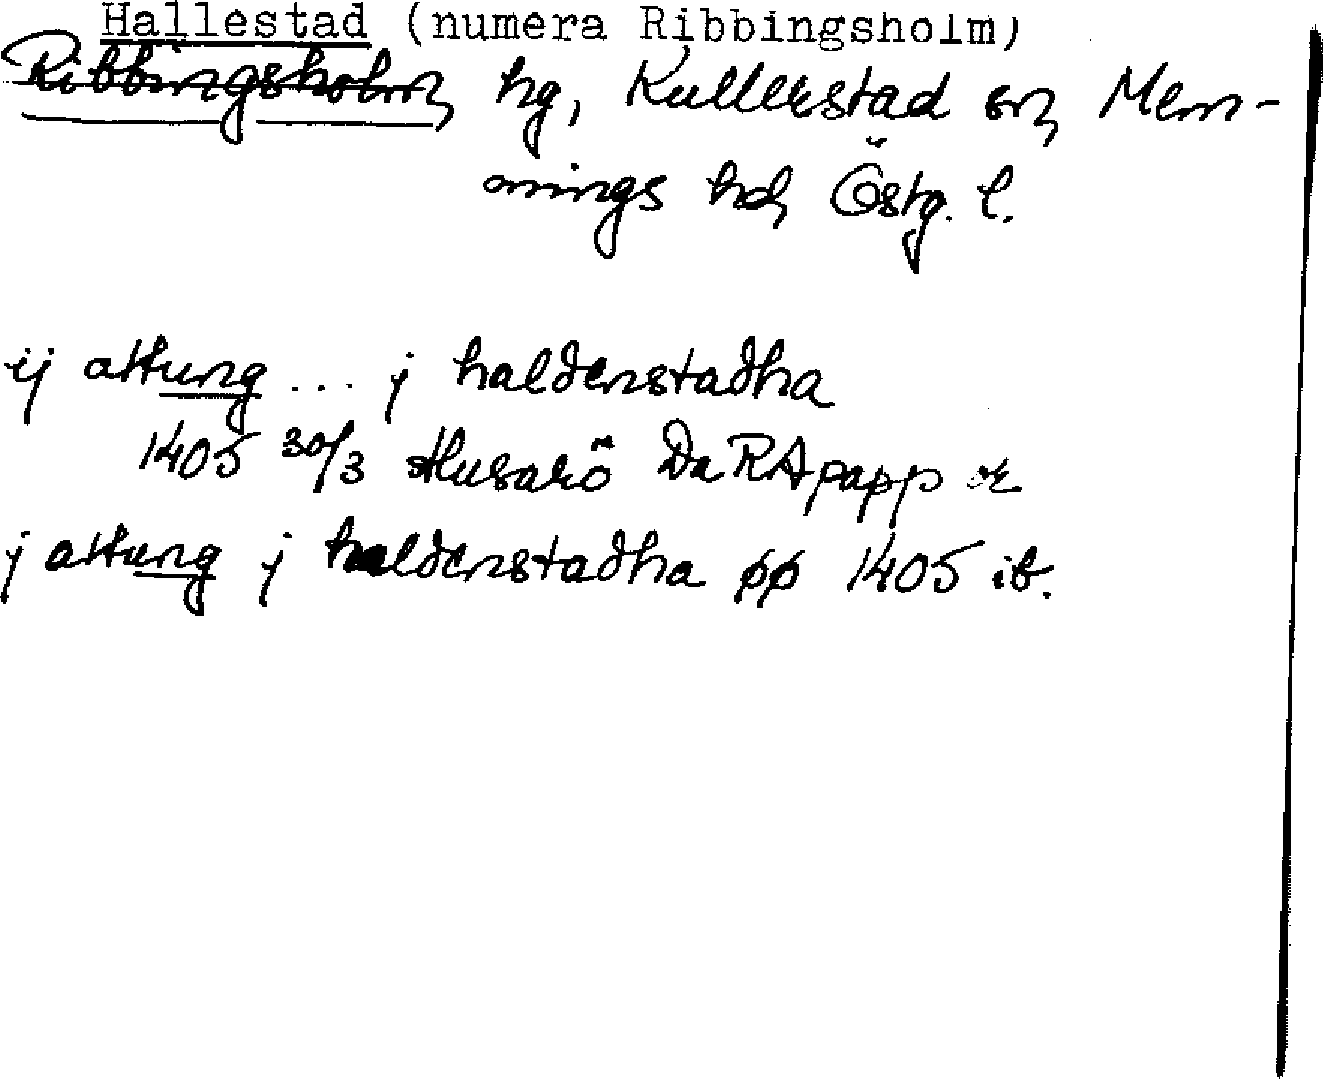 Hallestad (numera Ribbingsholm)
Ribbingsholm, hg, Kullerstad sn, Mem-
mings hd, Östg. l.
ij attung ... j haldenstadha
1405 30/3 Husarö Da RA papp or
j attung j haldenstadha pp 1405 ib.